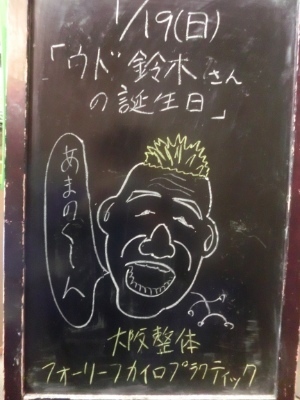 1/19(日)
「ウド鈴木さん
の誕生日」
あまのくーん
大阪整体
フォーリーフカイロプラクティック